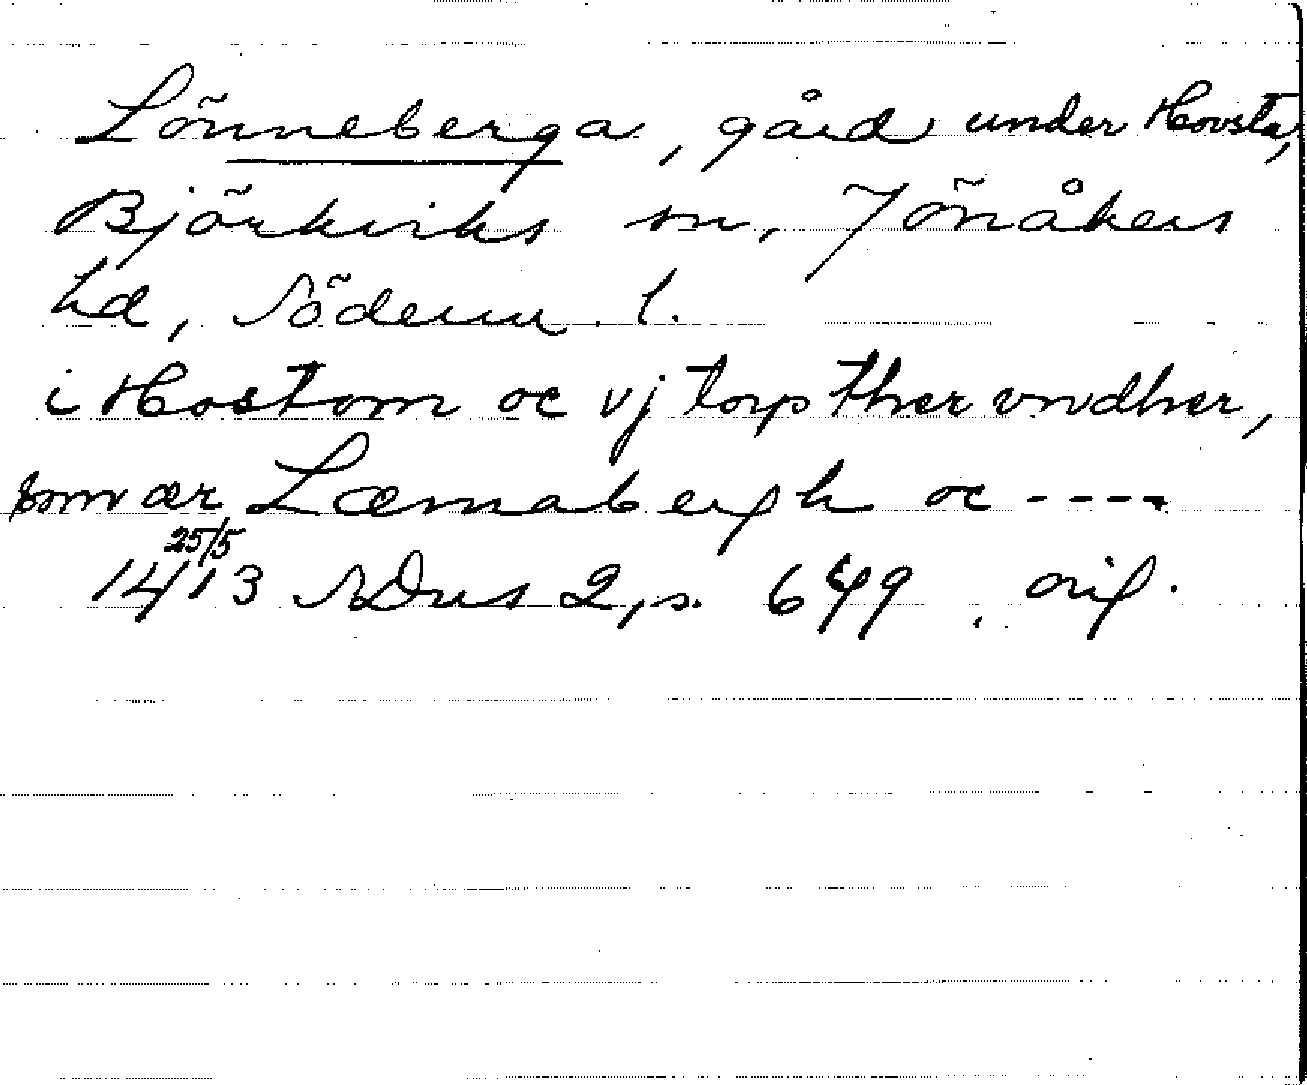 Lönneberga, gård under Hovsta,
Björkviks sn, Jönåkers
hd, Söderm. l.
i Hostom oc vj torp ther vndher,
som ær Læmnabergh oc ----
25/5
1413 SDns 2, s. 649. orig.